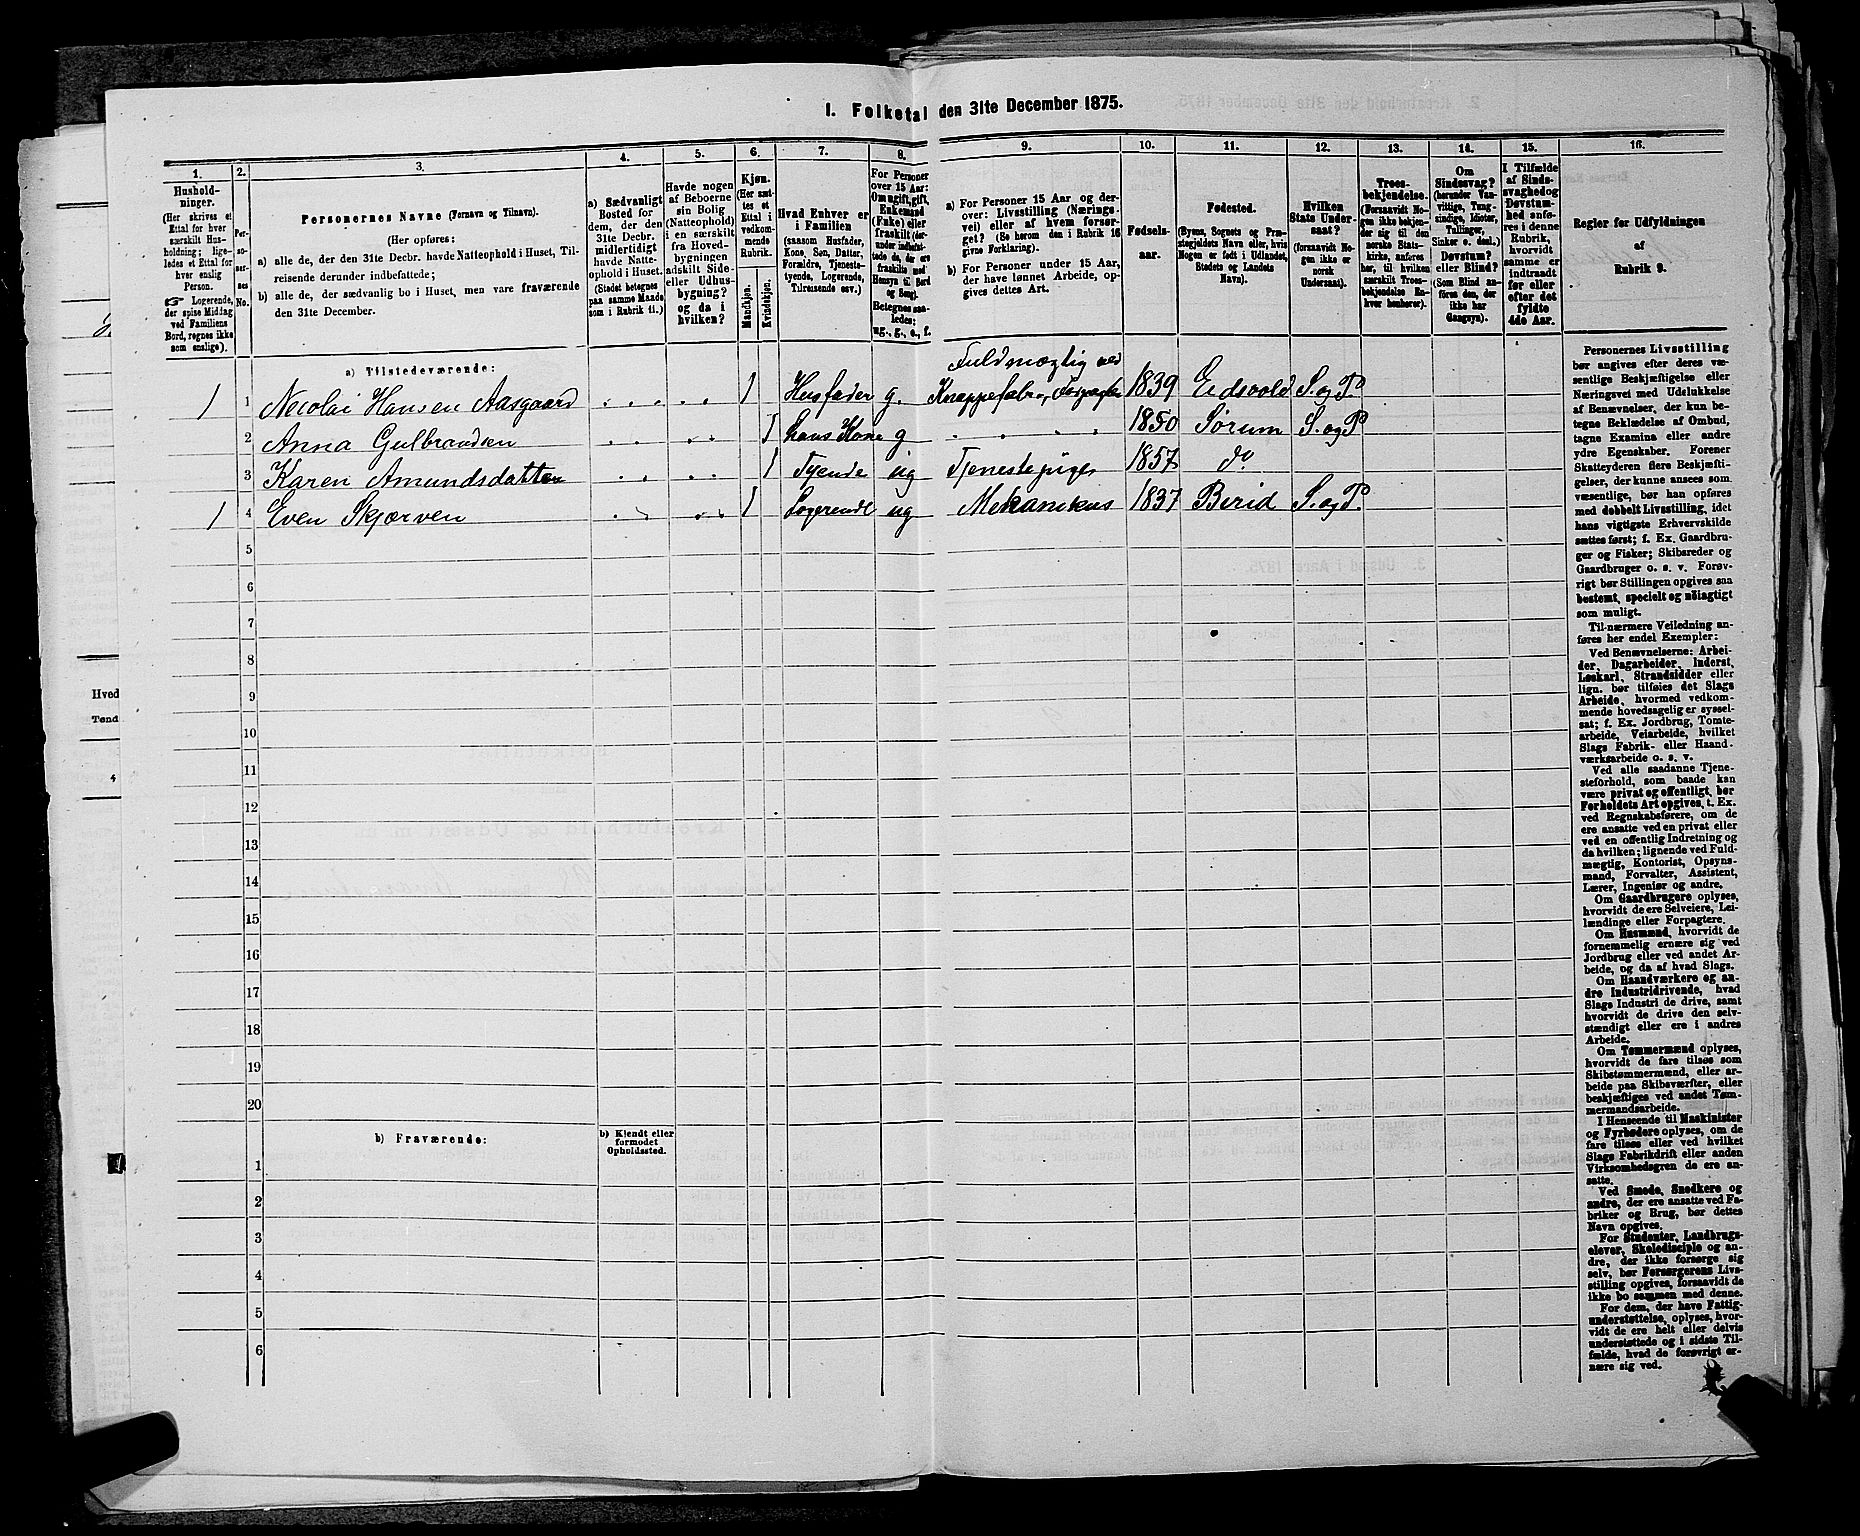 I. Folketal den 31te December 1875.
1. 2. 3. 4. 5. 6. 7. 8. 9. 10. 11. 12. 13. 14. 15. 16.
Hushold-
ninger.
(Her skrives et
Ettal for hver
særskilt Hus-
holdning; lige-
ledes et Ettal for
hver enslig
Person.
Logerende,
der spise Middag
ved Familiens
Bord, regnes ikke
som enslige).
Per-
so-
ner-
nes
No.
Personernes Navne (Fornavn og Tilnavn).
(Her opføres:
a) alle de, der den 31te Decbr. havde Natteophold i Huset, Til-
reisende derunder indbefattede;
b) alle de, der sædvanlig bo i Huset, men vare fraværende
den 31te December.
a) Sædvanligt
Bosted for
dem, der den
31te Decbr.
midlertidigt
havde Natte-
ophold i Huset.
(Stedet betegnes
paa samme Maade
som i Rubrik 11.)
Havde nogen
af Beboerne
sin Bolig
(Natteophold)
i en særskilt
fra Hoved-
bygningen
adskilt Side-
eller Udhus-
bygning?
og da i
hvilken?
Kjøn.
(Her sæt-
tes et
Ettal i
vedkom-
mende
Rubrik.
Mandkjøn.
Kvindekjøn.
Hvad Enhver er
i Familien
(saasom Husfader,
Kone, Søn, Datter,
Forældre, Tjeneste-
tyende, Logerende,
Tilreisende osv.)
For Personer
over 15 Aar:
Om ugift, gift,
Enkemand
(Enke) eller
fraskilt (der-
under indbefat-
tede de, der ere
fraskilte med
Hensyn til Bord
og Seng).
Betegnes saa-
ledes:
ug., g., e., f.
a) For Personer 15 Aar og der-
over: Livsstilling (Nærings-
vei) eller af hvem forsør-
get? (Se herom den i Rubrik 16
givne Forklaring).
b) For Personer under 15 Aar,
der have lønnet Arbeide, op-
gives dettes Art.
Fødsels-
aar.
Fødested.
(Byens, Sognets og Præ-
stegjeldets Navn eller, hvis
Nogen er født i Udlandet,
Stedets og Landets
Navn).
Hvilken
Stats Under-
saat?
(forsaavidt No-
gen ikke er
norsk
Undersaat).
Troes-
bekjendelse.
(Forsaavidt No-
gen ikke bekjen-
der sig til den
norske Stats-
kirke, anføres
her, til hvilken
særskilt Troes-
bekjendelse En-
hver henhører).
Om
Sindssvag?
(herunder Van-
vittige, Tung-
sindige, Idioter,
Tullinger,
Sinker o. desl.)
Døvstum?
eller Blind?
(Som Blind an-
føres den, der
ikke har
Gangsyn).
I Tilfælde
af Sinds-
svaghed og
Døvstum-
hed anfø-
res i denne
Rubrik,
hvorvidt
samme er
indtraadt
før eller
efter det
fyldte
4de Aar.
Regler for Udfyldningen
af
Rubrik 9.
a) Tilstedeværende:
1 1 Necolai Hansen Aasgaard 1 Husfader g. Fuldmægtig ved
1839 Eidsvold S. og P.
2 Anna Gulbrandsen 1 hans Kone g 1850 Sørum S. og P
3 Karen Amundsdatter 1 Tyende ug Tjenestepige 1857 do
1 4 Even Skjærven 1 Logerende ug Mekanikus 1837 Birid S. og P.
5
6
7
8
9
10
11
12
13
14
15
16
17
18
19
20
b) Fraværende:
b) Kjendt eller
formodet
Opholdssted.
1
2
3
4
5
6
Personernes Livsstilling
bør angives efter deres væ-
sentlige Beskjæftigelse eller
Næringsvei med Udelukkelse
af Benævnelser, der kun be-
tegne Beklædelse af Ombud,
tagne Examina eller andre
ydre Egenskaber. Forener
Skatteyderen flere Beskjæfti-
gelser, der kunne ansees som
væsentlige, bør han opføres
med dobbelt Livsstilling, idet
hans vigtigste Erhvervskilde
sættes først; f. Ex. Gaardbru-
ger og Fisker; Skibsreder og
Gaardbruger o. s. v. Forøv-
rigt bør Stillingen opgives saa
bestemt, specielt og nöiagtigt
som muligt.
Til nærmere Veiledning an-
føres her endel Exempler:
Ved Benævnelserne: Arbei-
der, Dagarbeider, Inderst,
Løskarl, Strandsidder eller
lign. bør tilføies det Slags
Arbeide, hvormed vedkom-
mende hovedsagelig er syssel-
sat; f. Ex. Jordbrug, Tomte-
arbeide, Veiarbeide, hvilket
Slags Fabrik- eller Haand-
værksarbeide o. s. v.
Ved alle saadanne Tjene-
steforhold, som baade kan
være privat og offentligt, bør
Forholdets Art opgives, t. Ex.
ved Regnskabsførere, om de
ere ansatte ved en privat eller
ved en offentlig Indretning og
da hvilken; lignende ved Fuld-
mægtig, Kontorist, Opsyns-
mand, Forvalter, Assistent,
Lærer, Ingeniør og andre.
Om Gaardbrugere oplyses,
hvorvidt de ere Selveiere, Lei-
lændinge eller Forpagtere.
Om Husmænd, hvorvidt de
fornemmelig ernære sig ved
Jordbrug eller ved andet Ar-
beide, og da af hvad Slags.
Om Haandværkere og an-
dre Industridrivende, hvad
Slags Industri de drive, samt
hvorvidt de drive den selv-
stændigt eller ere i andres
Arbeide.
Om Tømmermænd oplyses,
hvorvidt de fare tilsøs som
Skibstømmermænd, eller ar-
beide paa Skibsværfter, eller
beskjæftiges ved andet Tøm-
mermandsarbeide.
I Henseende til Maskinister
og Fyrbødere oplyses, om de
fare tilsøs eller ved hvilket
Slags Fabrikdrift eller anden
Virksomhedsgren de ere an-
satte.
Ved Smede, Snedkere og
andre, der ere ansatte ved Fa-
briker og Brug, bør dettes
Navn opgives.
For Studenter, Landbrugs-
elever, Skoledisciple og an-
dre, der ikke forsørge sig
selv, bør Forsørgerens Livs-
stilling opgives, forsaavidt de
ikke bo sammen med denne.
For dem, der have Fattig-
understøttelse, oplyses, hvor-
vidt de ere helt eller delvis
understøttede og i sidste Til-
fælde, hvad de forøvrigt er-
nære sig ved.
Hved
Tønd
4